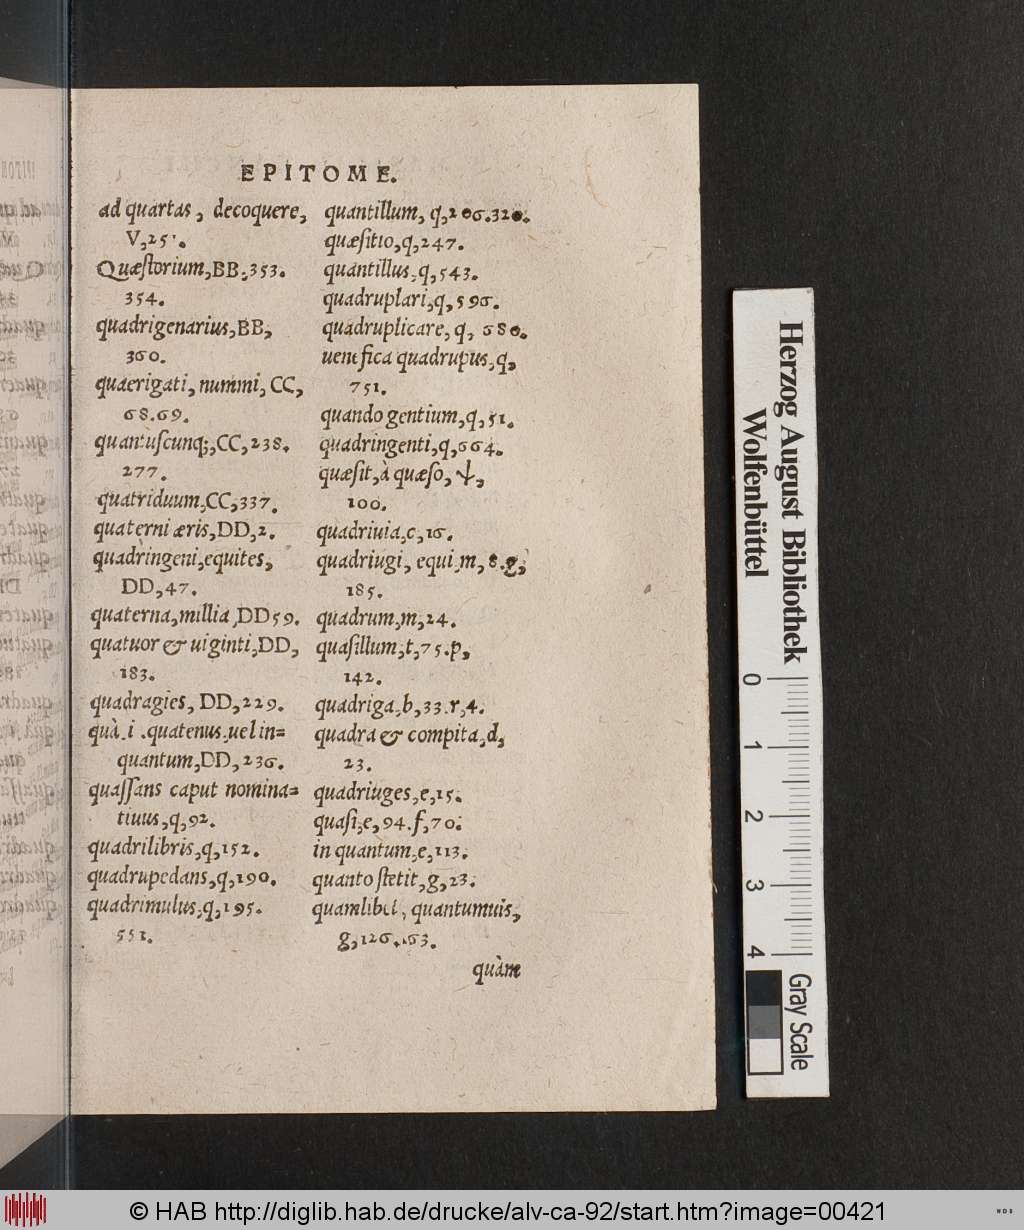 EPITOME.
ad quartas, decoquere,
V,25
Quæstorium,BB,353.
354.
quadrigenarius,BB,
360.
quaerigati, nummi, CC,
68.69.
quantuscunq;,CC,238.
277.
quatriduum,CC,337.
quaterni æris,DD,2.
quadringeni,equites,
DD,47.
quaterna,millia,DD59.
quatuor & uiginti,DD,
183.
quadragies, DD,229.
quà.i.quatenus.uel in=
quantum,DD,236.
quaſſans caput nomina=
tiuus,q,92.
quadrilibris,q,152.
quadrupedans,q,190.
quadrimulus,q,195.
551.
quantillum, q,206.320.
quæſitio,q,247.
quantillus,q,543.
quadruplari,q,596.
quadruplicare, q, 680.
uenefica quadrupus,q,
751.
quando gentium,q,51.
quadringenti,q,664.
quæſit,à quæſo,
100.
quadriuia,c,16.
quadriugi, equi,m,8.g,
185.
quadrum,m,24.
quaſillum,t,75.p,
142.
quadriga,b,33.r,4.
quadra & compita,d,
23.
quadriuges,e,15.
quaſi,e,94.f,70.
in quantum,e,113.
quanto ſtetit,g,23.
quamlibet, quantumuis,
g,126.163.
quàm
Herzog August Bibliothek
Wolfenbüttel
0 1 2 3 4
Gray Scale
© HAB http://diglib.hab.de/drucke/alv-ca-92/start.htm?image=00421